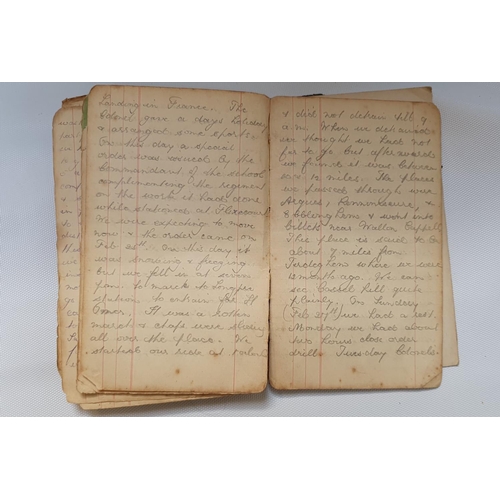 Landing in France. The
Colonel gave a days holiday
& arranged some sports.
On this day a special
order was issued by the
Commandant of the school
complimenting the regiment
on the work it had done
while stationed at
We were expecting to move
now & the order came on
Feb On this day it
was snowing & freezing
but we fell in at seven
p.m. to march to
station to entrain for St
Omer. It was a rotten
march & chaps were
all over the place. We
started our ride at
& did not detrain till 9
a.m. When we detrained
we thought we had not
far to go but afterwards
we found it was between
& 10 miles. The places
we passed through were
Arques, Renninksure, &
& went into
billets near Wallon Cappell
This place is said to be
about 7 miles from
where we were
a month ago. We can
see Cassel hill quite
plainly. On Sunday
Feb 27th we had a rest.
Monday we had about
two hours close order
drill. Tuesday